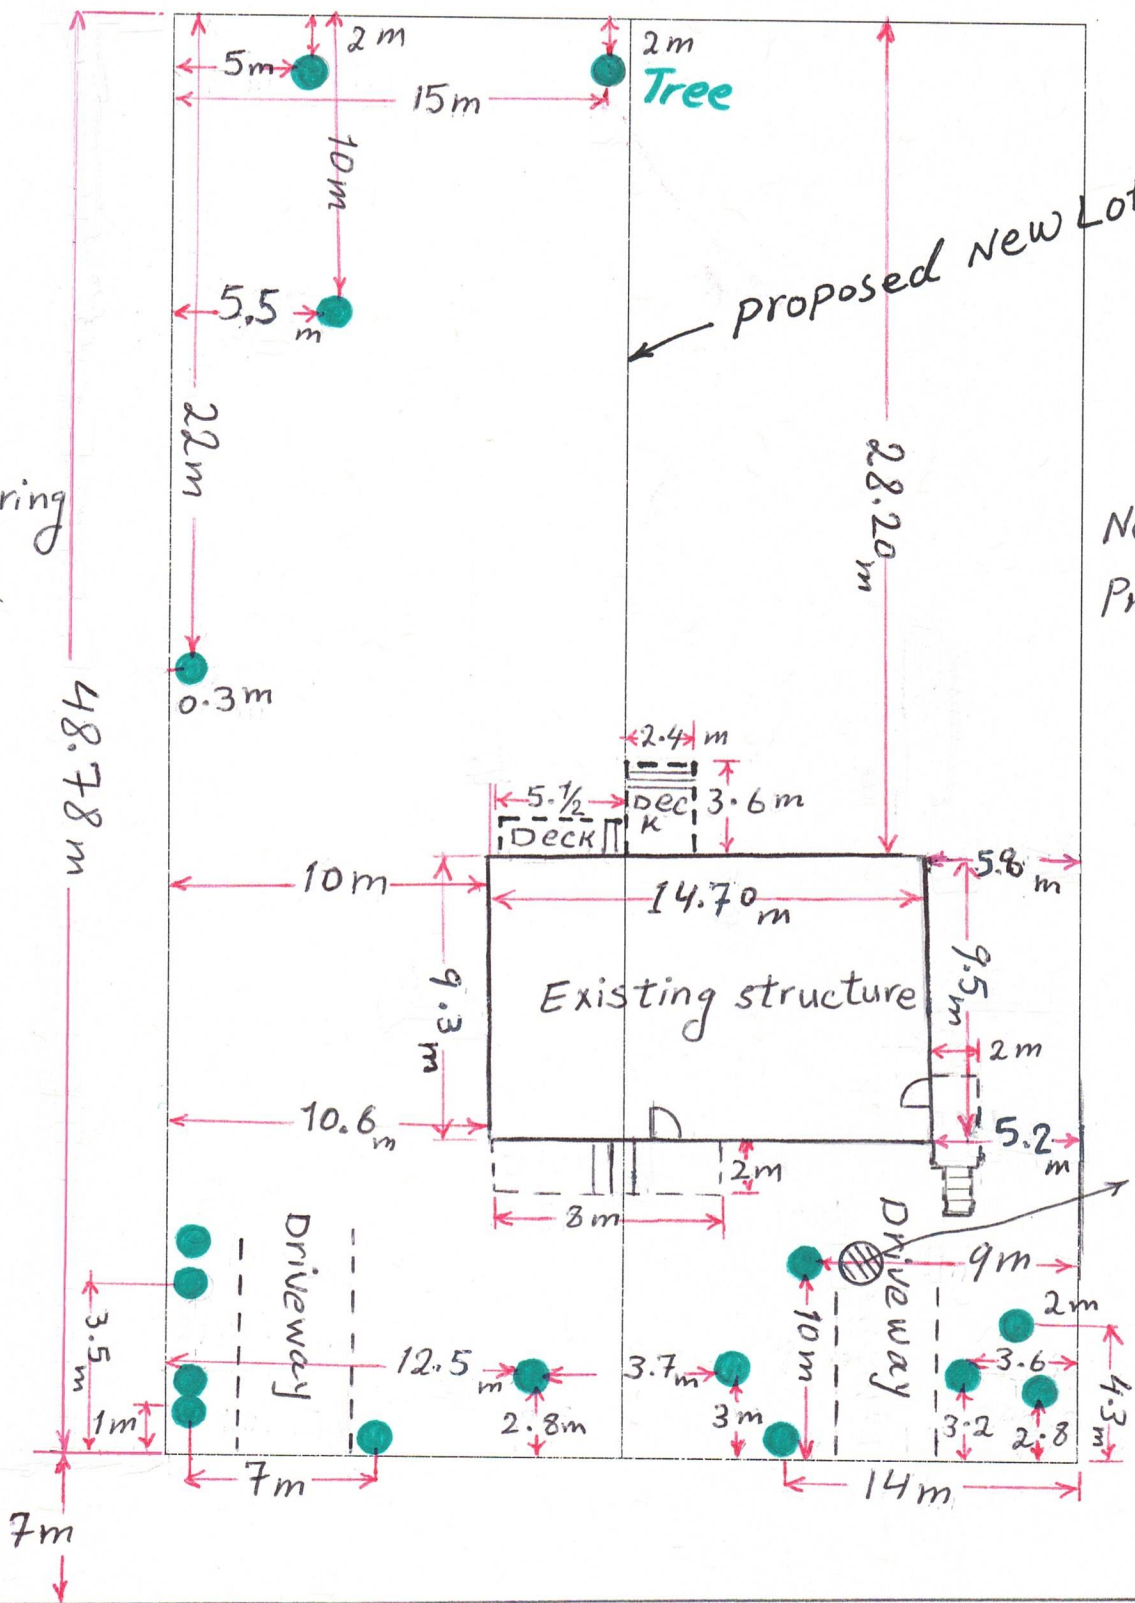 2m
2m
5m
Tree
15m
10m
proposed New Lot
5.5
m
22m
28.20
m
ring
0.3m
48.78 m
2.4 m
5.½
Deck
Dec
K
3.6m
10m
5.8
m
14.70 m
9.3 m
Existing structure
9.5m
2m
10.6 m
5.2
m
2m
8m
Driveway
Driveway
9m
3.5
m
10m
2m
12.5
m
3.7m
3.6
4.3
m
1m
2.8m
3m
3.2
2.8
7m
14m
7m